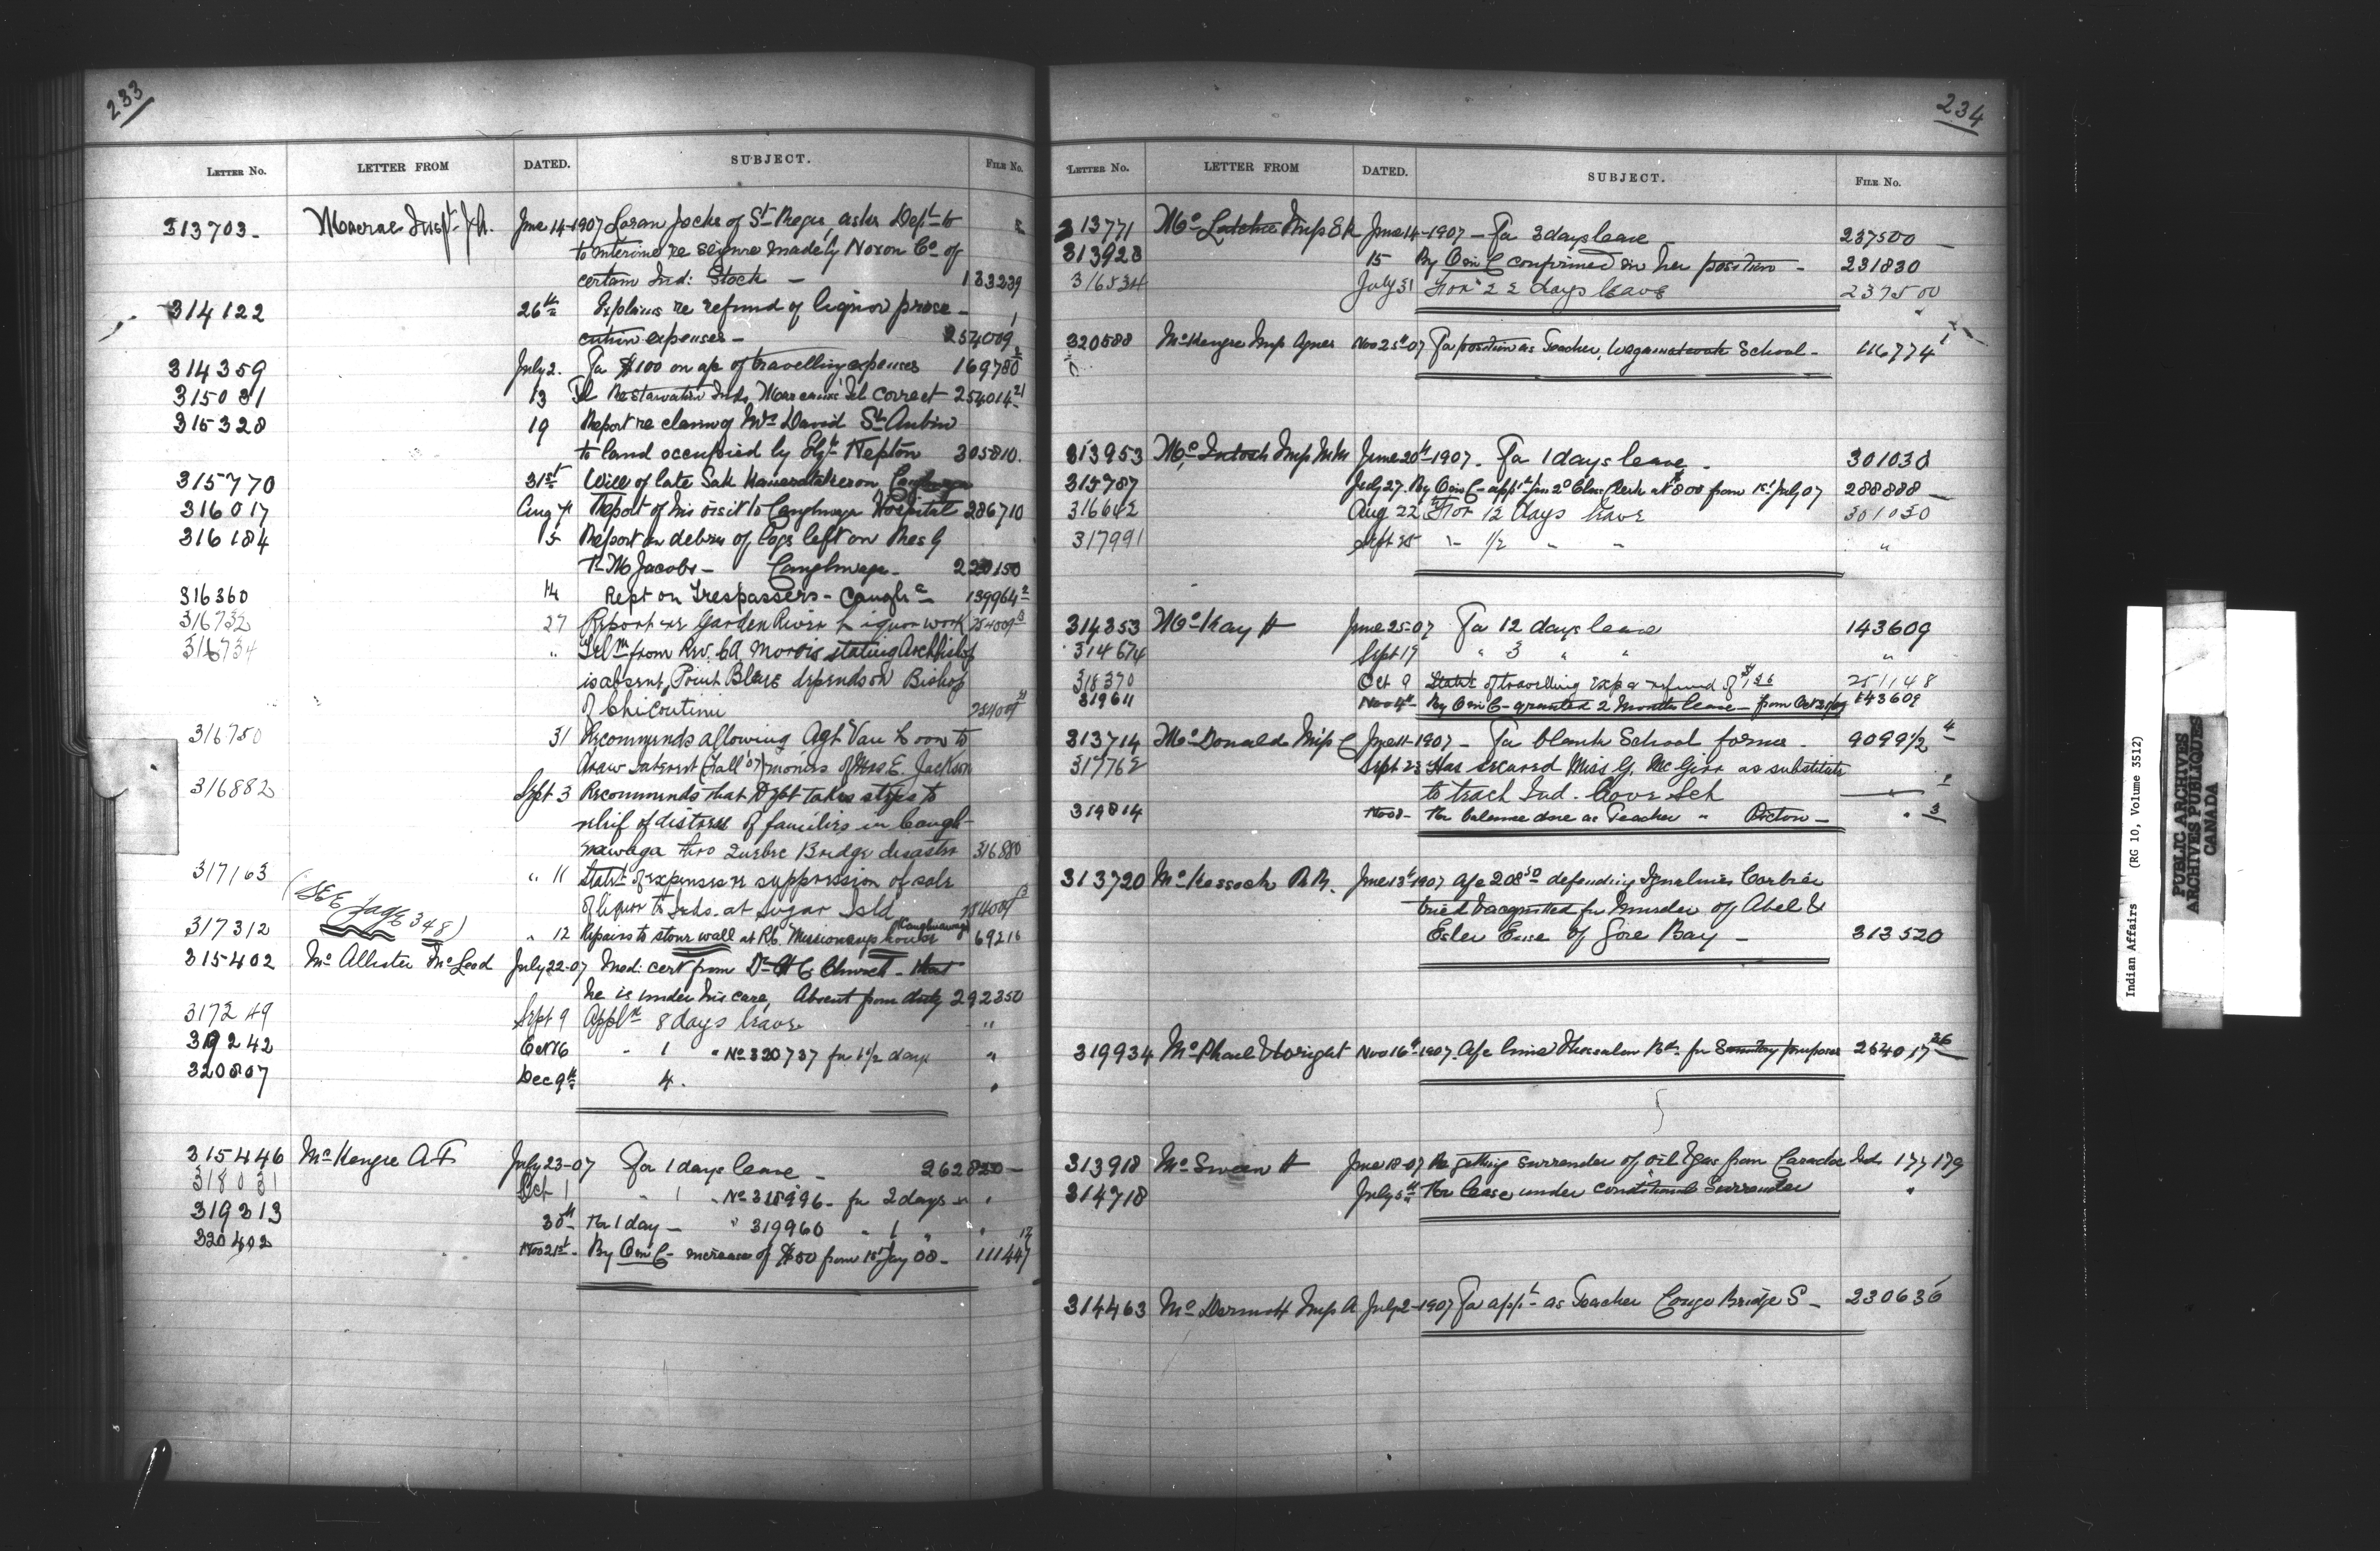 233
LETTER NO. LETTER FROM DATED. SUBJECT. FILE NO.
313703 Macrae Insp. J.A. June 14-1907 Loran Jocks of St Regis, asks Dept to
to intervene re seizure made by Noxon Co. of
certain Ind: Stock — 133239
314122 26th Explains re refund of liquor prose-
cution expenses — 254009
314359 July 2. For $100 on a/c of travelling expenses 169780
315031 13 correct 254014
315328 19 Report re claim of Mrs David St Aubin
to land occupied by Elzr. Nepton 305810.
315770 31st Will of late Sak
316017 Aug 7 Report of his visit to Caughnwaga Hospital 286710
316184 15 Report on debris of logs left on Res by
P. M Jacobs — Caughnwaga — 220150
316360 14 Rept on Trespassers - Caugha — 139964 2
316732 27 Report re Garden River Liquor work 254009
316734 " Telm from Rev. Morris stating Archbishop
is absent, Point Bleue depends on Bishop
of Chicoutimi 254009
316750 31 Recommends allowing Agt Van Loon to
draw Interest (Fall '07) monies of Mrs. E. Jackson
316882 Sept 3 Recommends that Dept takes steps to
relief of distress of families in Caugh-
nawaga thro Quebec Bridge disaster 316880
317163 " 11 Statt of expenses re suppression of sale
of liquor to Inds. at Sugar Isld 254009
(SEE page 348)
317312 " 12 Repairs to stone wall at R.C. Missionary's house Caughnawaga 69216
315402 Mc Allister McLeod July 22-07 Med: cert from Dr H C Church - that
he is under his care, Absent from duty 292350
317249 Sept 9 Appln 8 days leave "
319242 Oct 16 " 1 " No 320737 for 1 1/2 days "
320807 Dec 9th 4. "
315446 McKenzie A F July 23-07 For 1 days leave — 262820 —
318031 Oct 1 " 1 " No 318996 - for 2 days "
319313 30th For 1 day — " 319960 " 1 " "
320402 Nov 21st - By O in C - increase of $50 from 1st Jay 08 - 111447
234
LETTER NO. LETTER FROM DATED. SUBJECT. FILE NO.
313771 Mc Latchie Miss E R June 14-1907 — For 3 days leave — 237500 —
313928 15 By O in C confirmed in her position — 231830
316534 July 31 For 22 days leave 237500
320588 McKenzie Miss Agnes Nov 25th 07 For position as Teacher, School — 116774
313953 Mc Intosh Miss June 20th 1907. For 1 days leave. 301030
315787 July 27. By O in C - appt for 2d Class Clerk at $800 from 1st July 07 288888 —
316642 Aug 22 For 12 days leave 301030
317991 Sept 25 " 1/2 " " "
314353 Mc Kay H June 25-07 For 12 days leave 143609
314674 Sept 19 " 3 " " "
318370 Oct 9 Statt of travelling exps & refund of 251148
319611 Nov 4th By O in C - granted 2 Months leave - from 143609
313714 Mc Donald Miss C June 11-1907 — For blank School forms — 9099 1/2 4
317762 Sept 23 Has secured Miss G. McGirr as substitute
to teach Ind. Cove Sch "
319814 Nov 8 — For balance due as Teacher " — " 3
313720 McKessock R R. June 13th 1907 A/c 208.50 defending Corbier
tried & acquitted for Murder of Abel &
Esler Ense of Gore Bay — 313520
319934 McPhail & Wright Nov 16th 1907. A/c for purposes 254017
313918 McSween H June 18-07 Re getting surrender of oil & gas from Caradoc Ind. 177179
314718 July 5th For lease under conditional Surrender "
314463 McDermott Miss A July 2-1907 For appt - as Teacher Bridge S — 230636
Indian Affairs (RG 10, Volume 3512)
PUBLIC ARCHIVES
ARCHIVES PUBLIQUES
CANADA